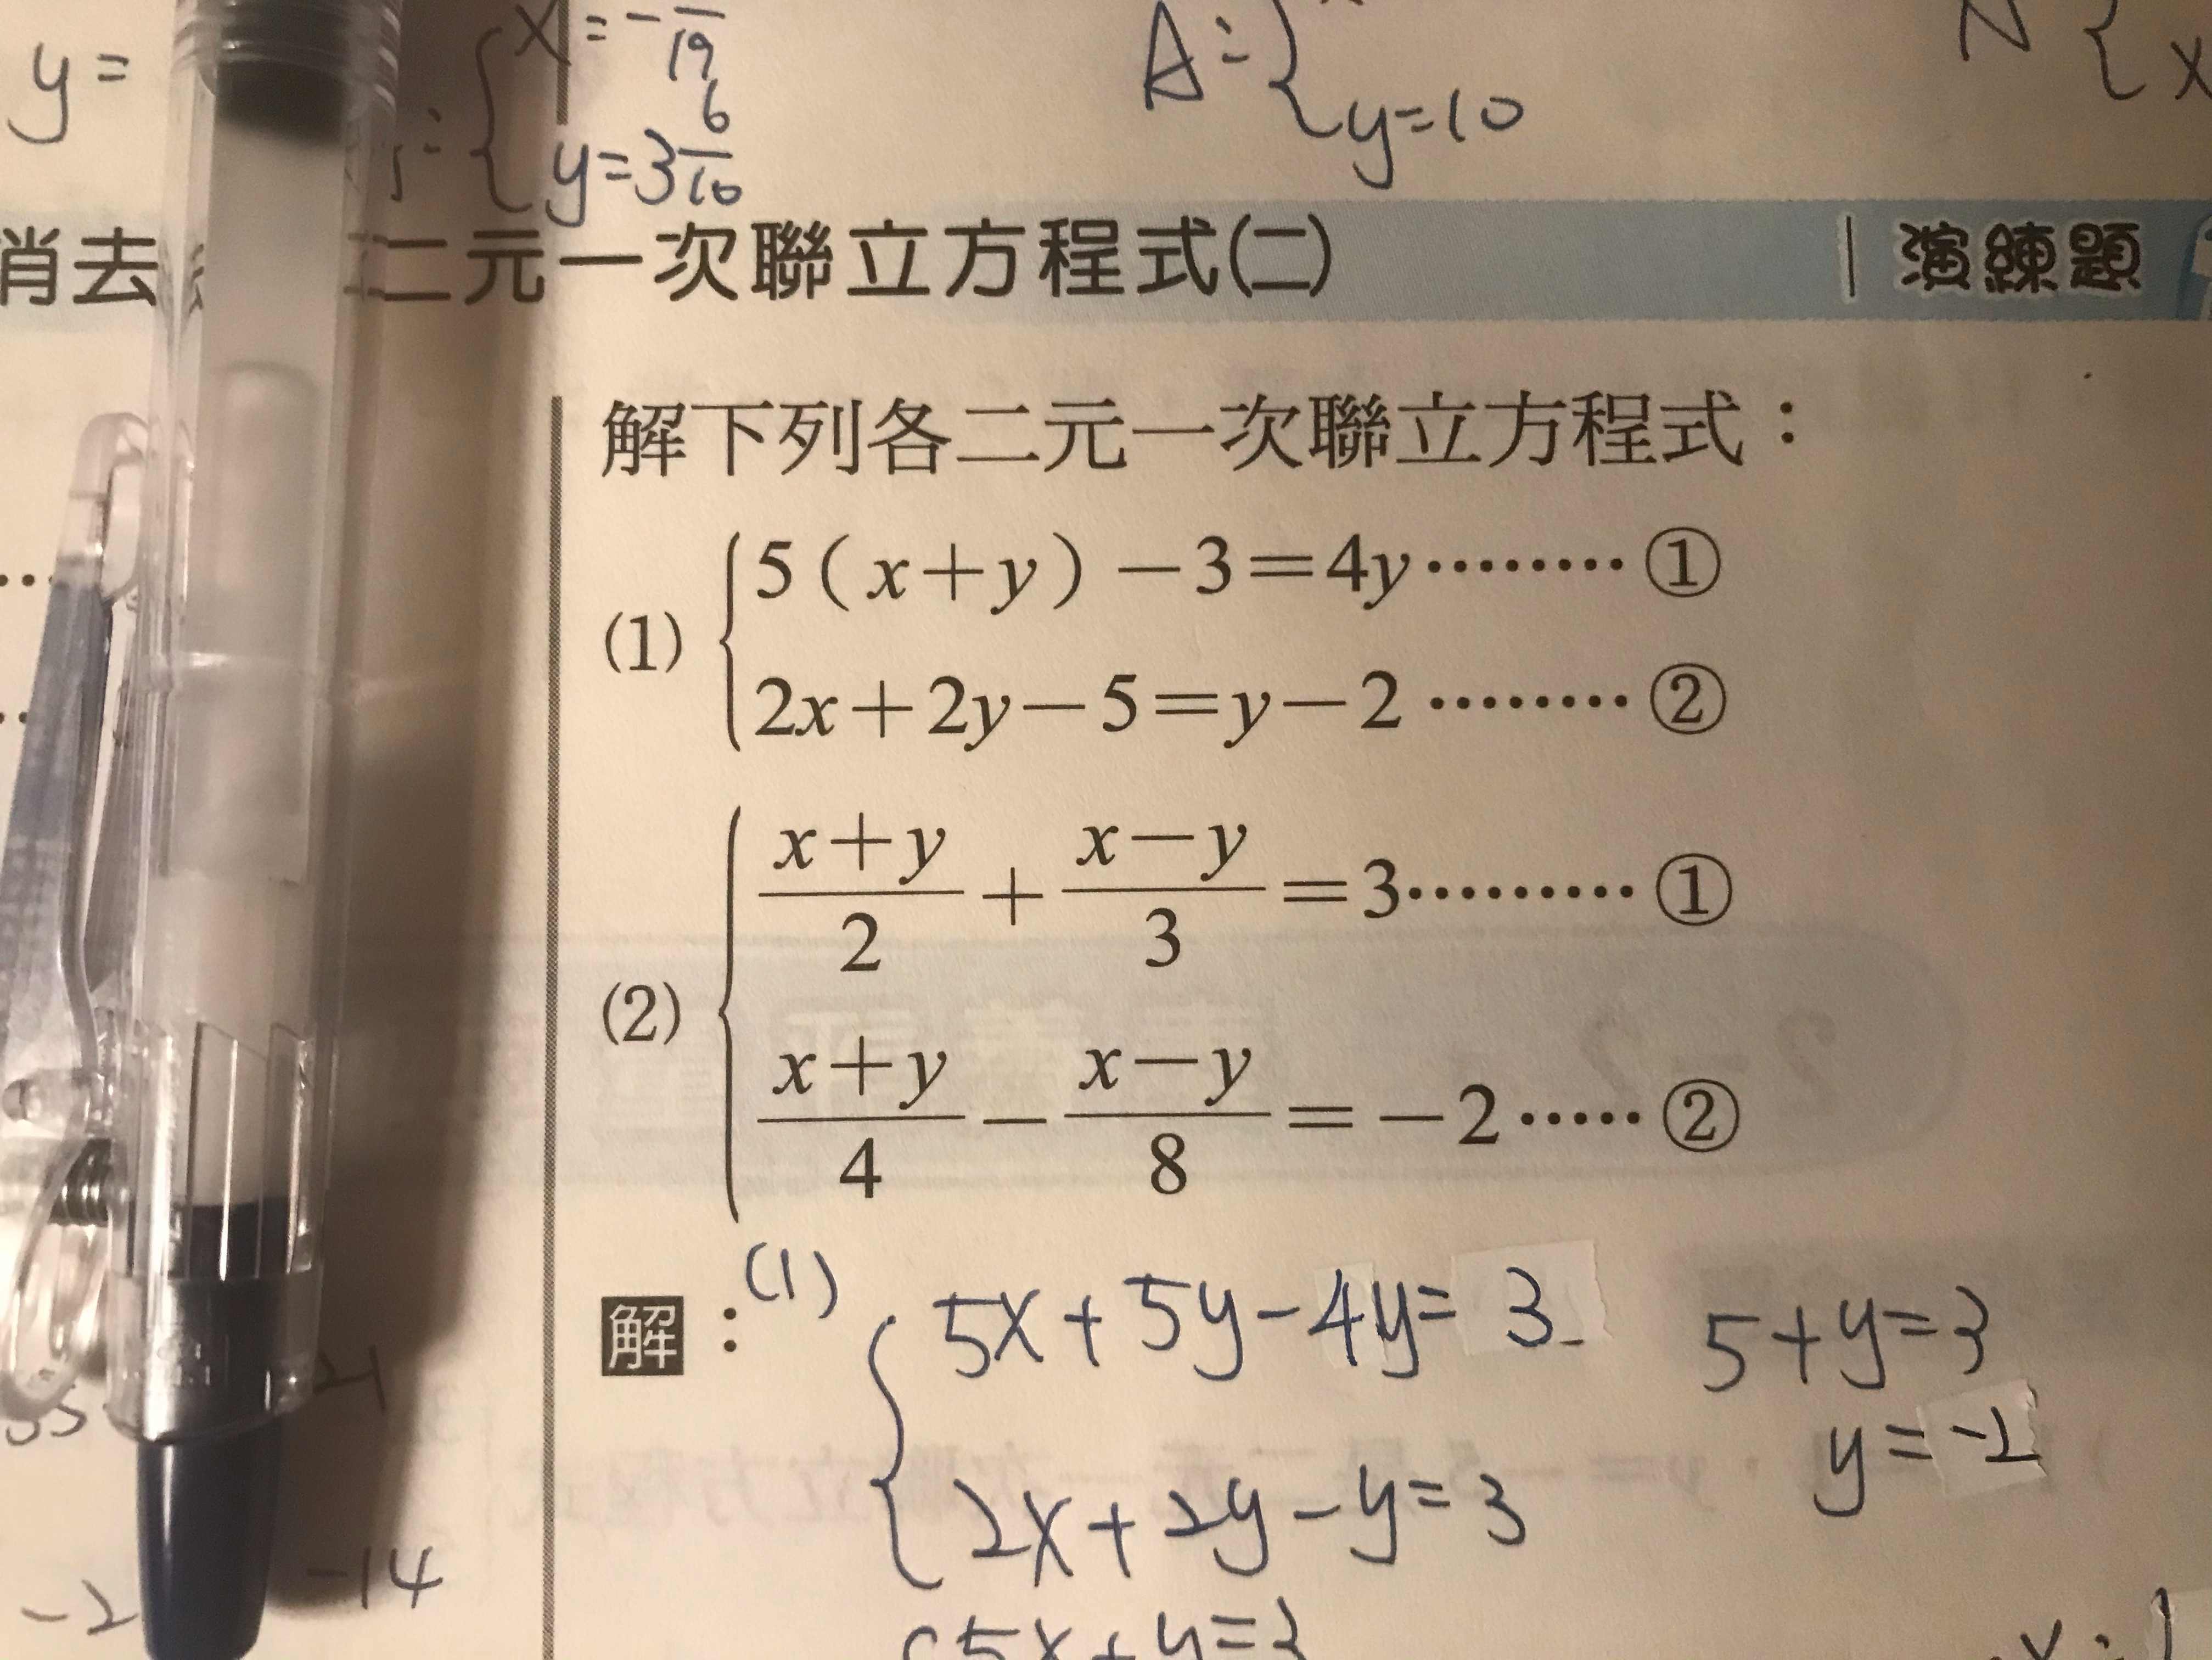 y=
x=-
19
6
y=3
10
A:
y=10
x
消去 二元一次聯立方程式(二) | 演練題
解下列各二元一次聯立方程式：
(1) { 5(x+y)-3=4y········①
2x+2y-5=y-2········②
(2) { \frac{x+y}{2}+\frac{x-y}{3}=3·········①
\frac{x+y}{4}-\frac{x-y}{8}=-2·····②
解：(1)
{ 5x+5y-4y=3
2x+2y-y=3
5x+y=3
5+y=3
y=-2
-2
-14